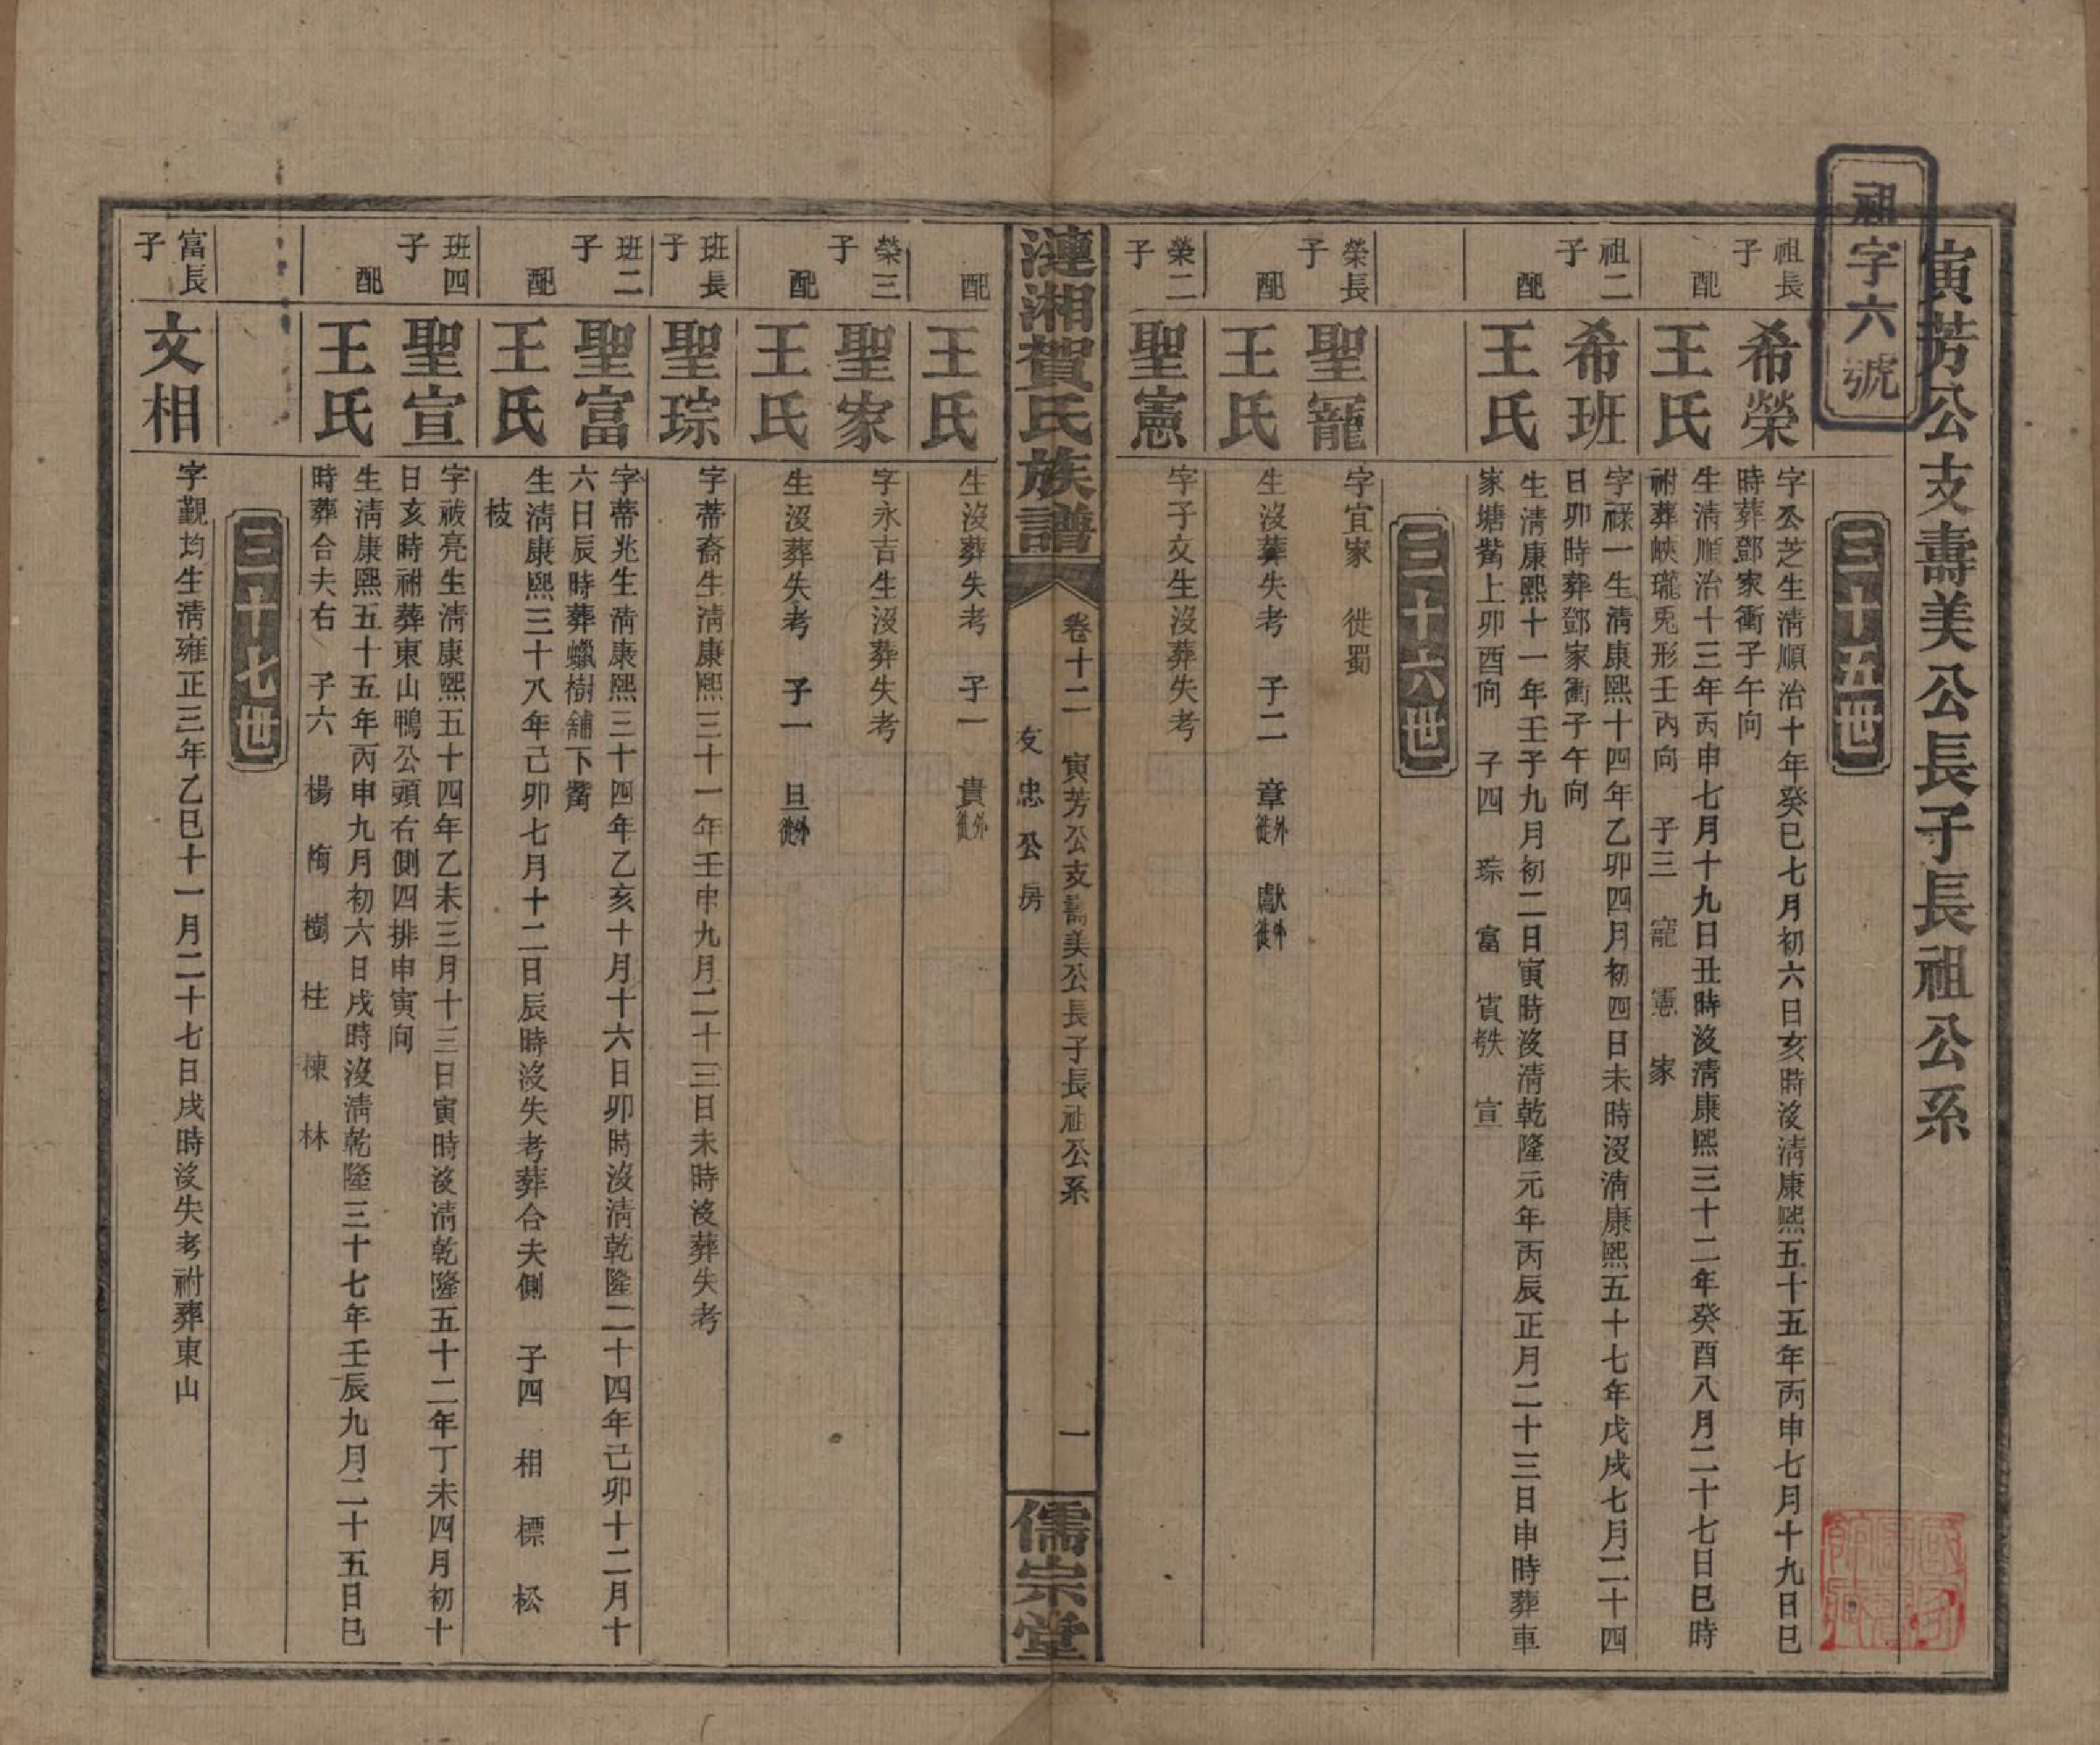 祖字六號
寅芳公支壽美公長子長祖公系
三十五世
祖長子
希榮
字公芝生淸順治十年癸巳七月初六日亥時沒淸康熙五十五年丙申七月十九日巳
時葬鄧家衝子午向
配
王氏
生淸順治十三年丙申七月十九日丑時沒淸康熙三十二年癸酉八月二十七日巳時
祔葬峽瓏兎形壬丙向 子三 寵 憲 家
祖二子
希班
字祿一生淸康熙十四年乙卯四月初四日未時沒淸康熙五十七年戊戌七月二十四
日卯時葬鄧家衝子午向
配
王氏
生淸康熙十一年壬子九月初二日寅時沒淸乾隆元年丙辰正月二十三日申時葬車
家塘觜上卯酉向 子四 琮 富 賓 宣
三十六世
榮長子
聖寵
字宜家 徙蜀
配
王氏
生沒葬失考 子二 章徙外 獻徙外
榮二子
聖憲
字子文生沒葬失考
漣湘賀氏族譜
卷十二 寅芳公支壽美公長子長祖公系 一
友忠公房
儒宗堂
配
王氏
生沒葬失考 子一 貴徙外
榮三子
聖家
字永吉生沒葬失考
配
王氏
生沒葬失考 子一 旦徙外
班長子
聖琮
字蒂裔生淸康熙三十一年壬申九月二十三日未時沒葬失考
班二子
聖富
字蒂兆生淸康熙三十四年乙亥十月十六日卯時沒淸乾隆二十四年己卯十二月十
六日辰時葬蠟樹舖下觜
配
王氏
生淸康熙三十八年己卯七月十二日辰時沒失考葬合夫側 子四 相 標 松
枝
班四子
聖宣
字祓亮生淸康熙五十四年乙未三月十三日寅時沒淸乾隆五十二年丁未四月初十
日亥時祔葬東山鴨公頭右側四排申寅向
配
王氏
生淸康熙五十五年丙申九月初六日戌時沒淸乾隆三十七年壬辰九月二十五日巳
時葬合夫右 子六 楊 梅 樹 柱 棟 林
三十七世
富長子
文相
字觀均生淸雍正三年乙巳十一月二十七日戌時沒失考祔葬東山